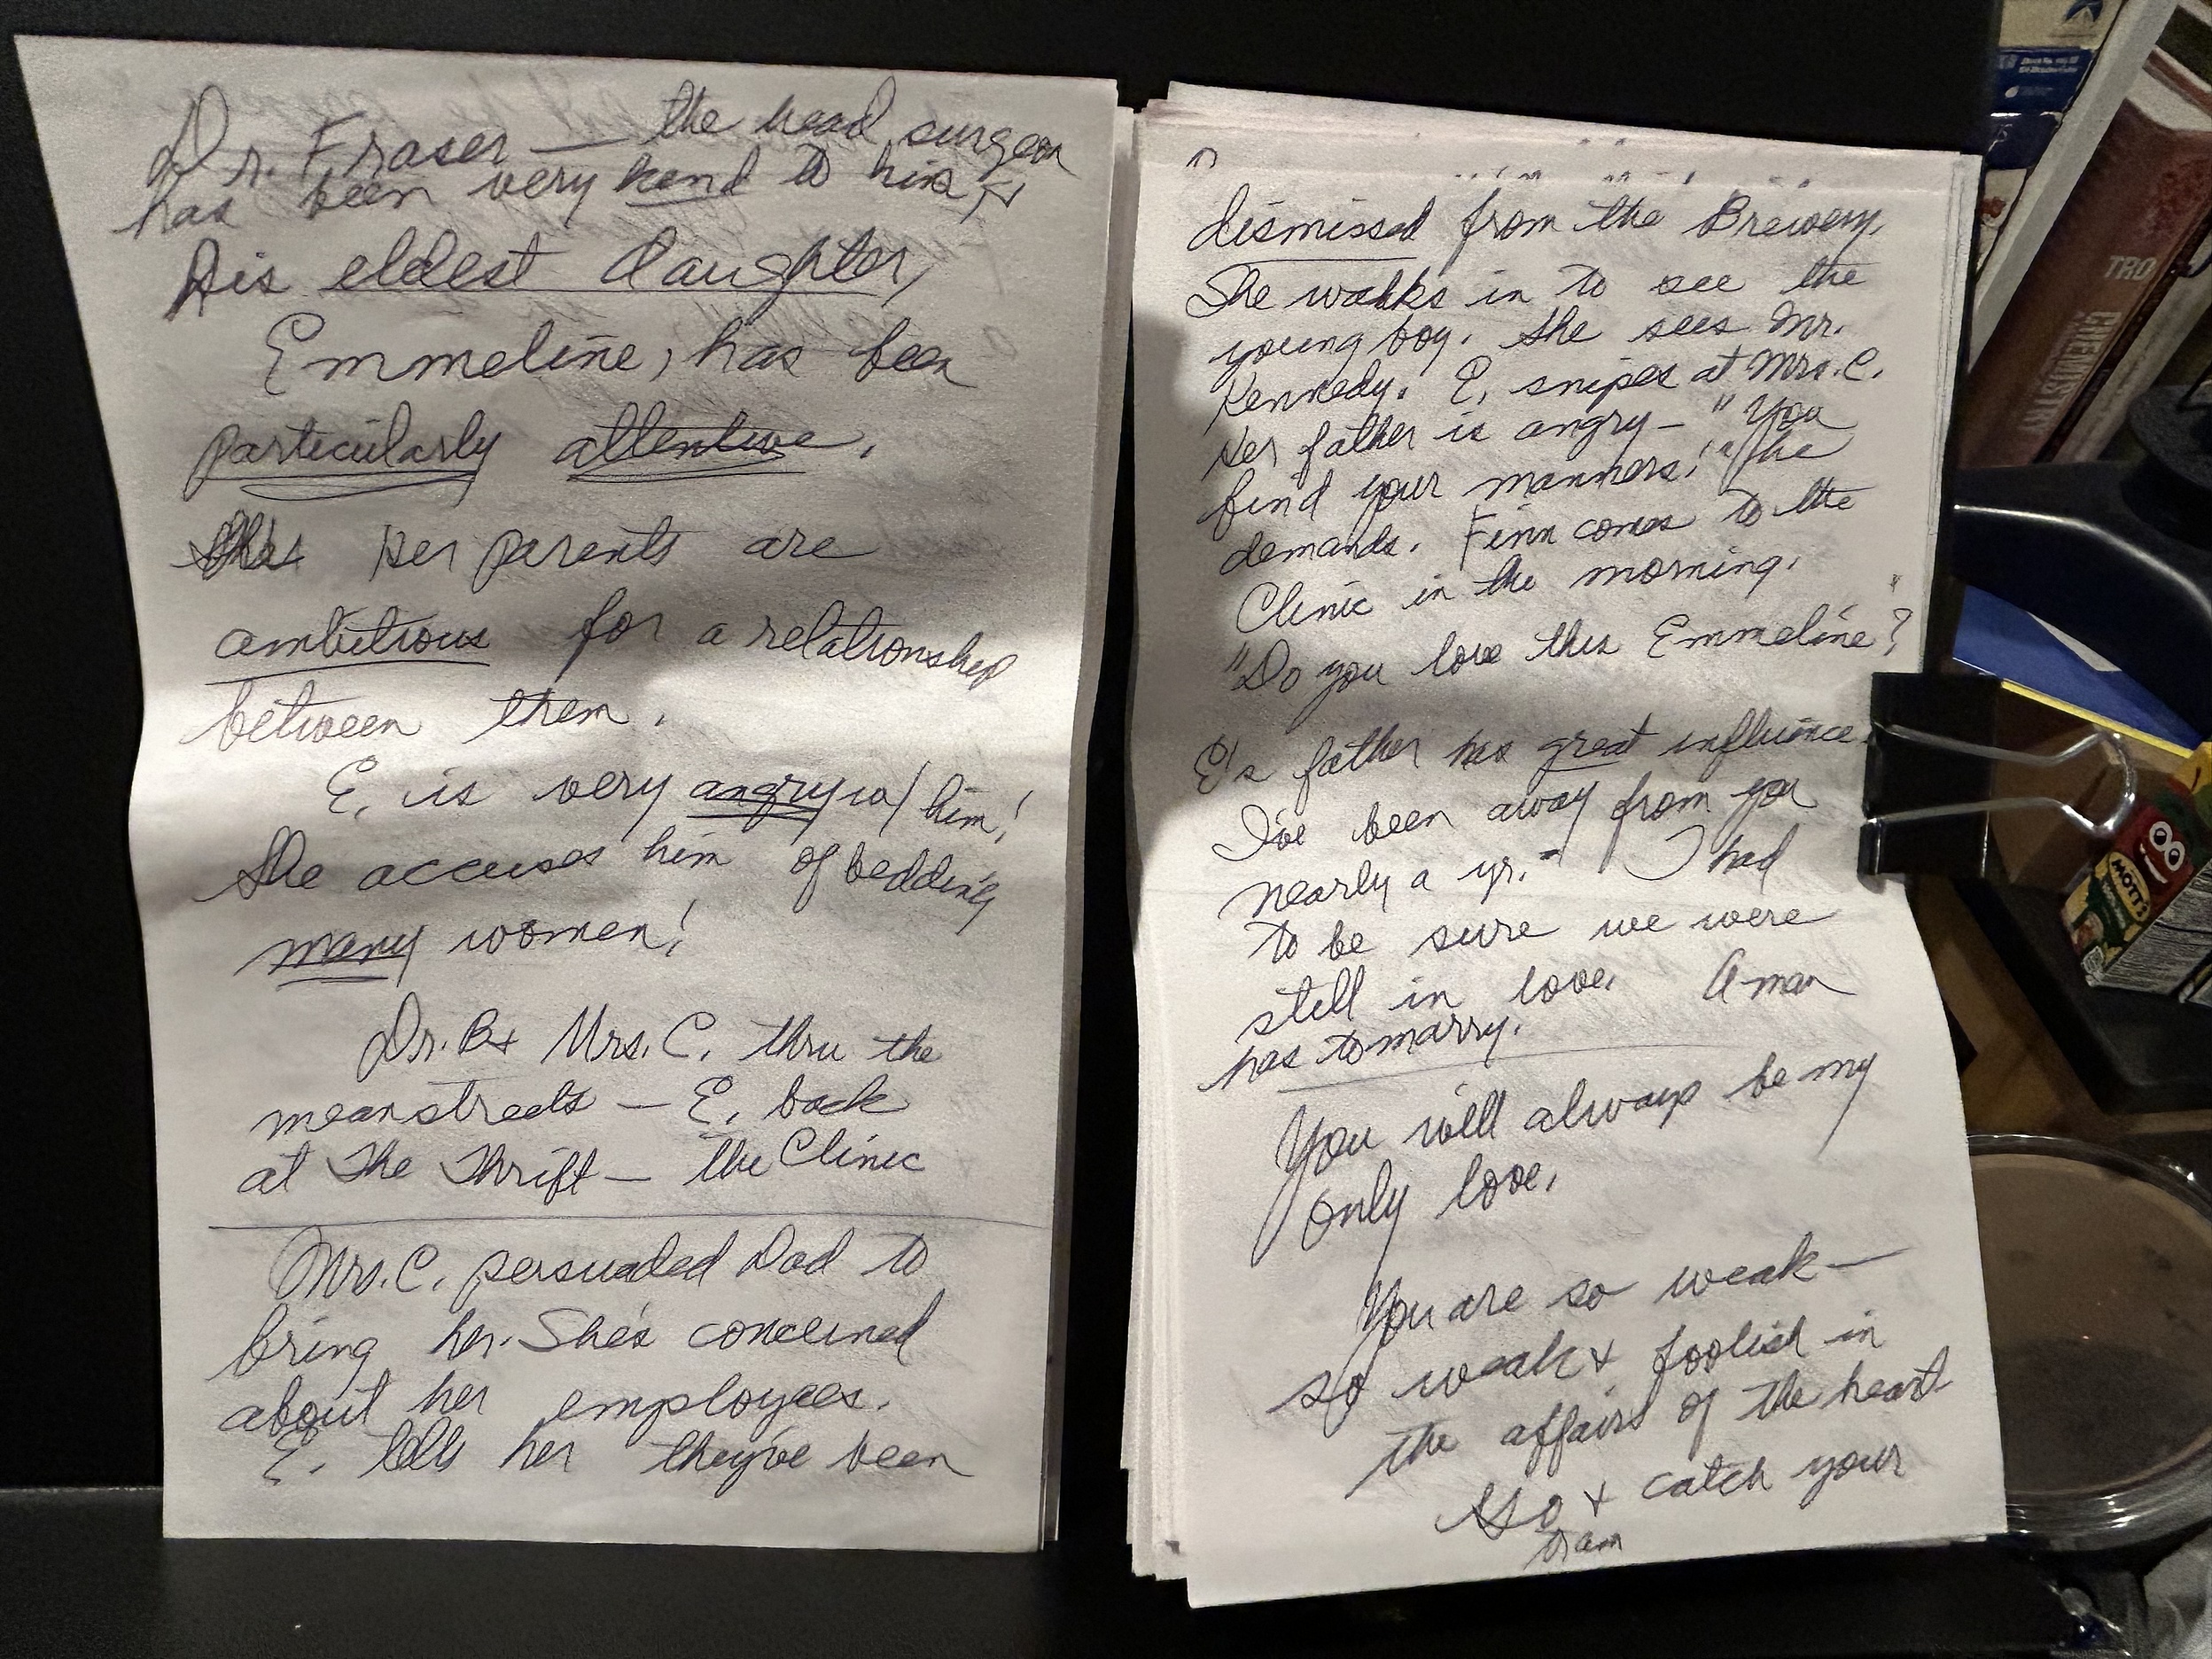 Dr. Fraser — the head surgeon
has been very kind to him &
his eldest daughter,
Emmeline, has been
particularly attentive.
Her parents are
ambitious for a relationship
between them.
E. is very angry w/ him!
She accuses him of bedding
many women!
Dr. B+ Mrs. C. thru the
meanstreets — E. back
at The Thrift — the Clinic
Mrs. C. persuaded Dad to
bring her. She's concerned
about her employees.
E. tells her they've been
dismissed from the Brewery.
She walks in to see the
young boy. She sees Mr.
Kennedy. E. snipes at Mrs. C.
Her father is angry — "You
find your manners!" he
demands. Finn comes to the
Clinic in the morning.
"Do you love this Emmeline?"
E's father has great influence.
I've been away from you
nearly a yr." I had
to be sure we were
still in love. A man
has to marry.
You will always be my
only love.
You are so weak —
so weak & foolish in
the affairs of the heart
Go & catch your
tram
TRO
CHEMISTRY
MOTT'S